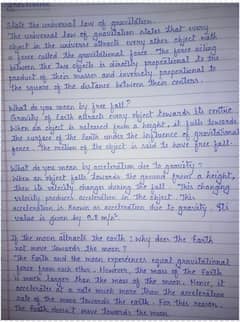 Gravitation
State the universal law of gravitation.
The universal law of gravitation states that every
object in the universe attracts every other object with
a force called the gravitational force. The force acting
between the two objects is directly proportional to the
product of their masses and inversely proportional to
the square of the distance between their centers.
What do you mean by free fall?
Gravity of Earth attracts every object towards its centre.
When an object is released from a height, it falls towards
the surface of the Earth under the influence of gravitational
force. The motion of the object is said to have free fall.
What do you mean by acceleration due to gravity?
When an object falls towards the ground from a height,
then its velocity changes during the fall. This changing
velocity produces acceleration in the object. This
acceleration is known as acceleration due to gravity. Its
value is given by 9.8 m/s².
If the moon attracts the earth, why does the Earth
not move towards the moon?
The Earth and the moon experiences equal gravitational
force from each other. However, the mass of the Earth
is much larger than the mass of the moon. Hence, it
accelerates at a rate much more than the acceleration
rate of the moon towards the Earth. For this reason,
the Earth doesn't move towards the moon.